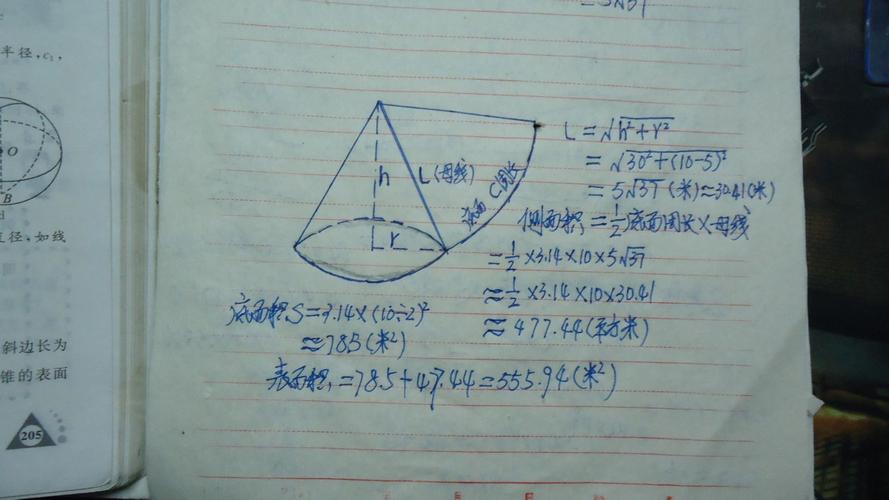 =5√37
半径,c₁,
O
B
直径、如线
斜边长为
锥的表面
205
h
L(母线)
底面C周长
r
L=√h²+r²
=√30²+(10-5)²
=5√37(米)≈30.41(米)
侧面积=½底面周长×母线
=½×3.14×10×5√37
≈½×3.14×10×30.41
≈477.44(平方米)
底面积S=3.14×(10÷2)²
≈78.5(米²)
表面积=78.5+47.44=555.94(米²)